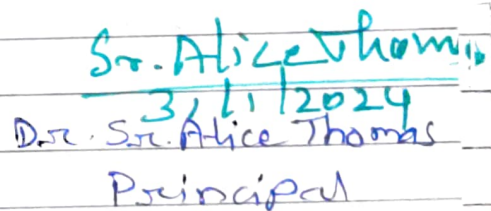 Sr. Alice Thomas
3/1/2024
Dr. Sr. Alice Thomas
Principal